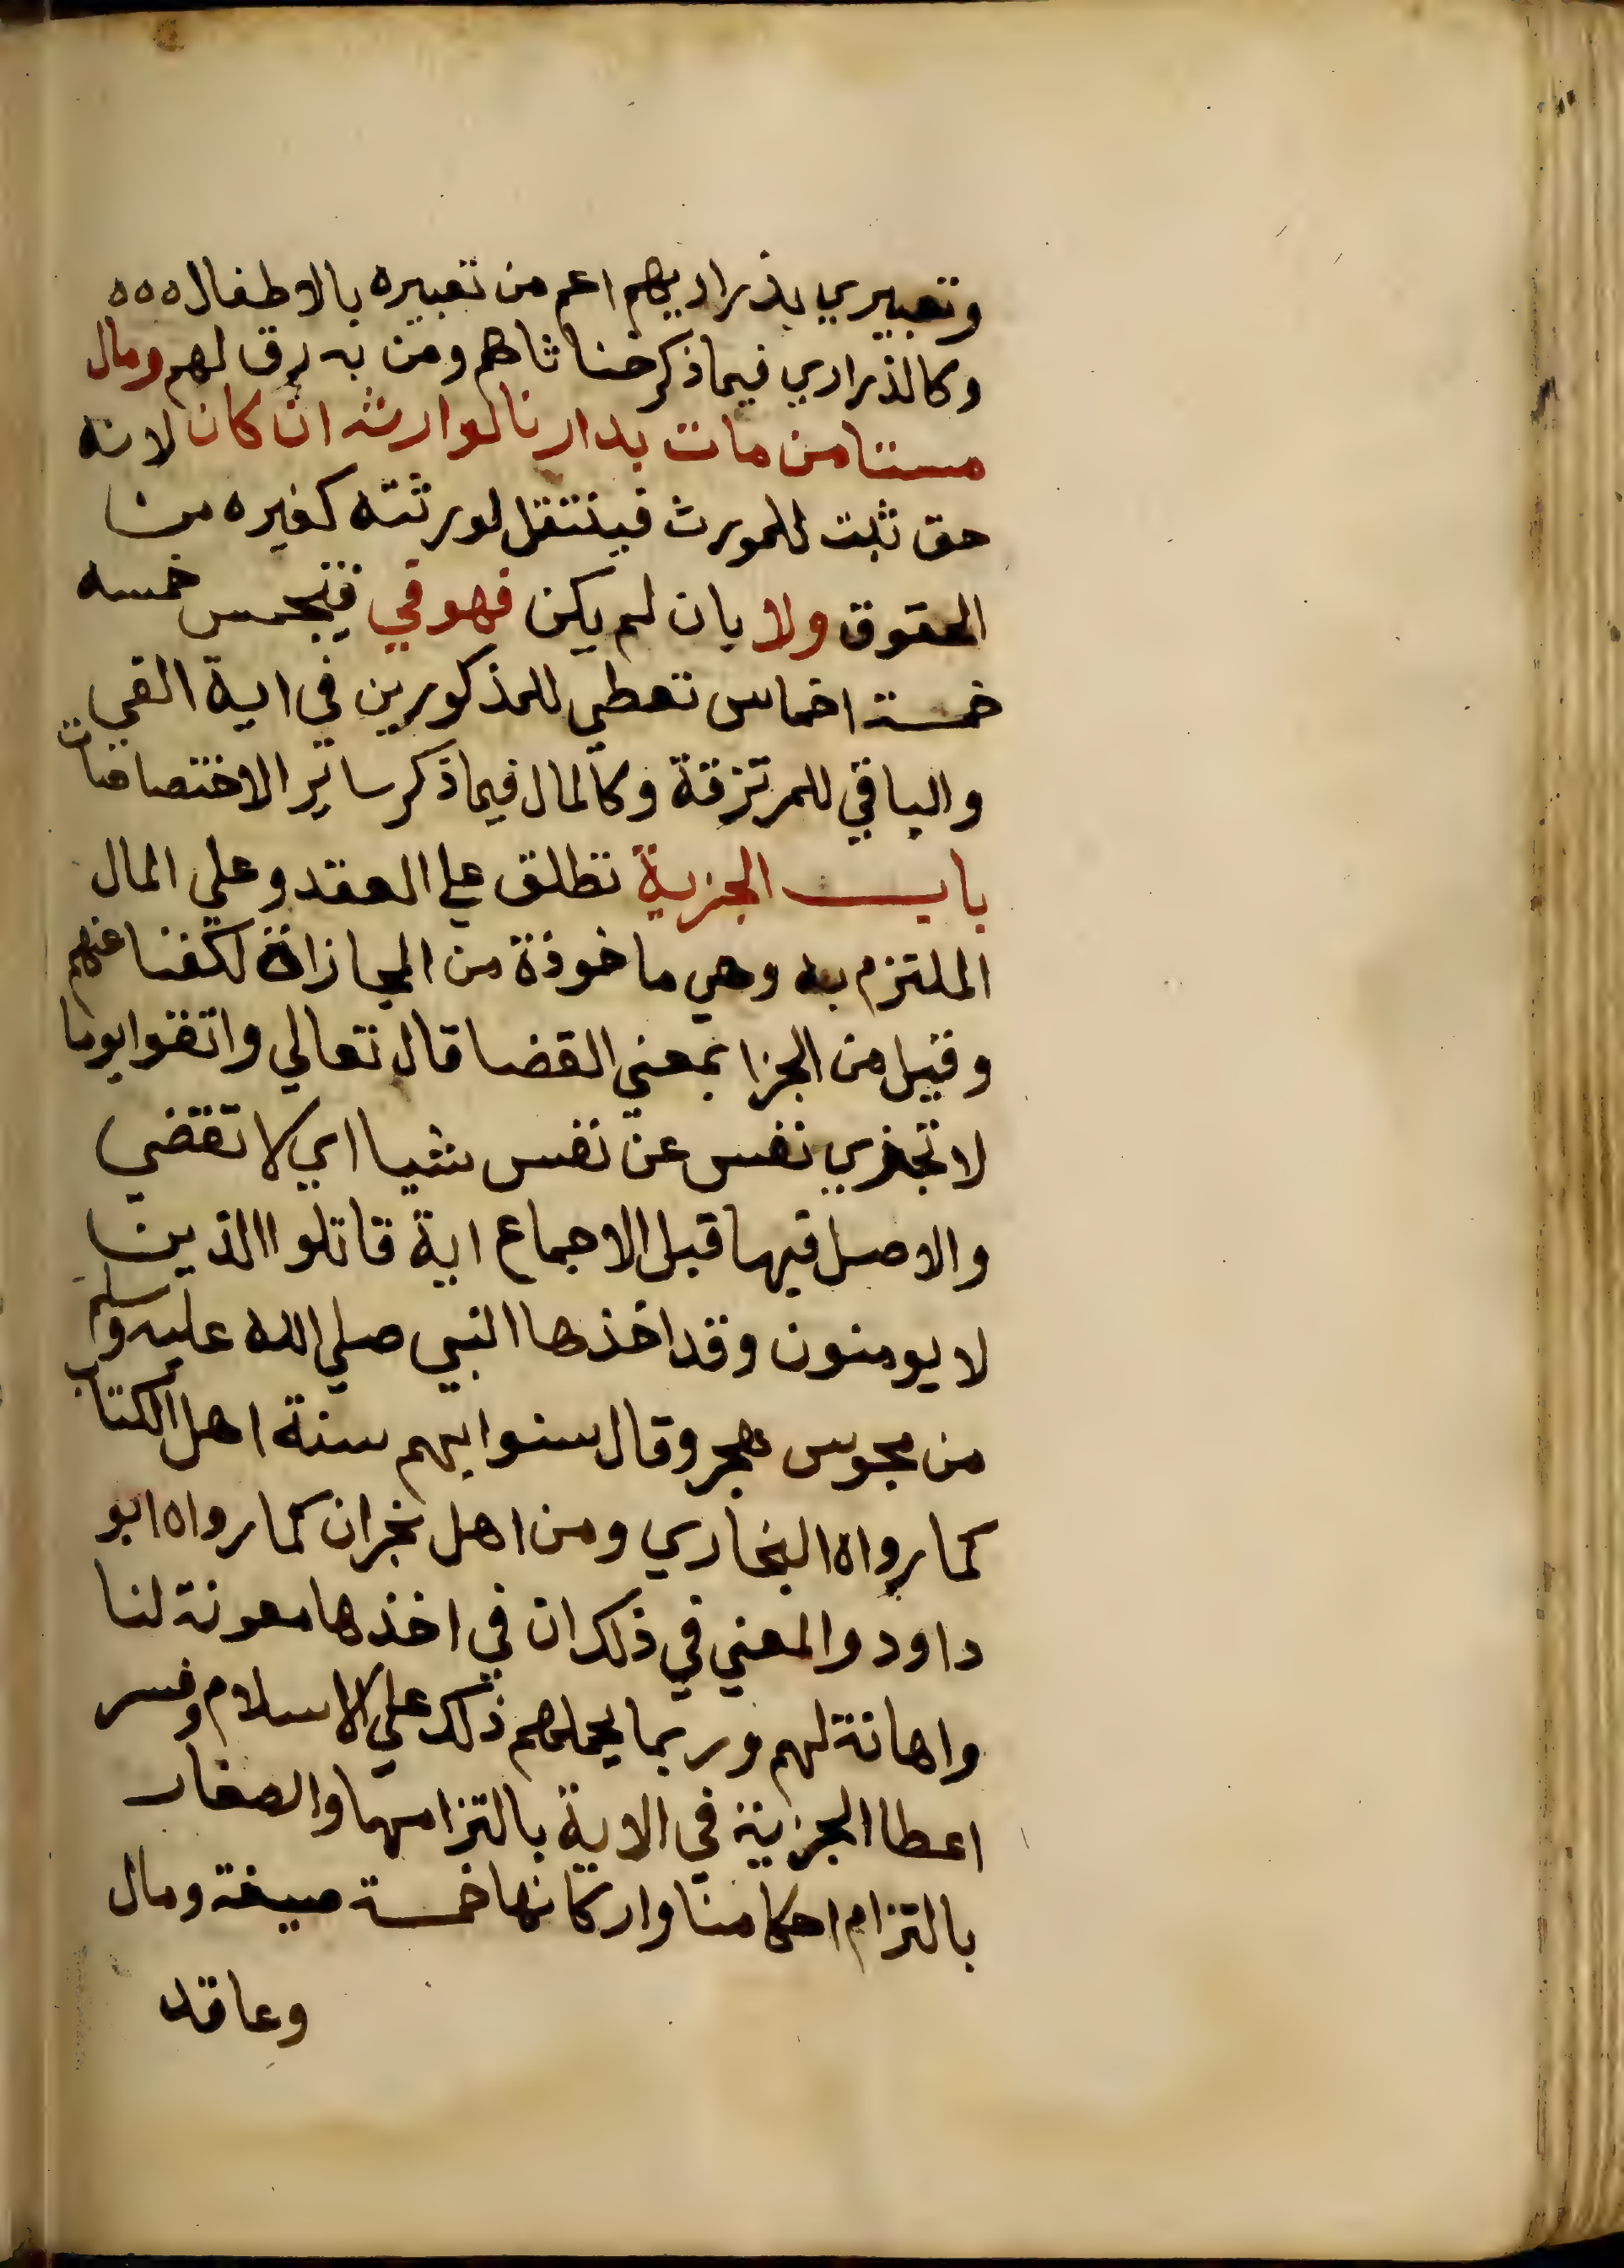 وتعبيري بذراريهم اعم من تعبيره بالاطفال ٥٥٥
وكالذراري فيما ذكر خناثاهم ومن به رق لهم ومال
مستامن مات بدارنا لوارثه ان كان لانه
حق ثبت للمورث فينتقل لورثته كغيره من
الحقوق ولا بان لم يكن فهو في فيخمس خمسه
خمسة اخماس تعطي للمذكورين في اية الفي
والباقي للمرتزقة وكالمال فيما ذكر ساير الاختصاصات
باب الجزية تطلق علي العقد وعلي المال
الملتزم به وهي ماخوذة من المجازاة لكفنا عنهم
وقيل من الجزا بمعني القضا قال تعالي واتقوا يوما
لا تجزي نفس عن نفس شيا اي لا تقضي
والاصل فيها قبل الاجماع اية قاتلوا الذين
لا يومنون وقد اخذها النبي صلي الله عليه وسلم
من مجوس هجر وقال سنوا بهم سنة اهل الكتاب
كما رواه البخاري ومن اهل نجران كما رواه ابو
داود والمعني في ذلك ان في اخذها معونة لنا
واهانة لهم وربما يحملهم ذلك علي الاسلام وفسر
اعطا الجزية في الاية بالتزامها والصغار
بالتزام احكامنا واركانها خمسة صيغة ومال
وعاقد